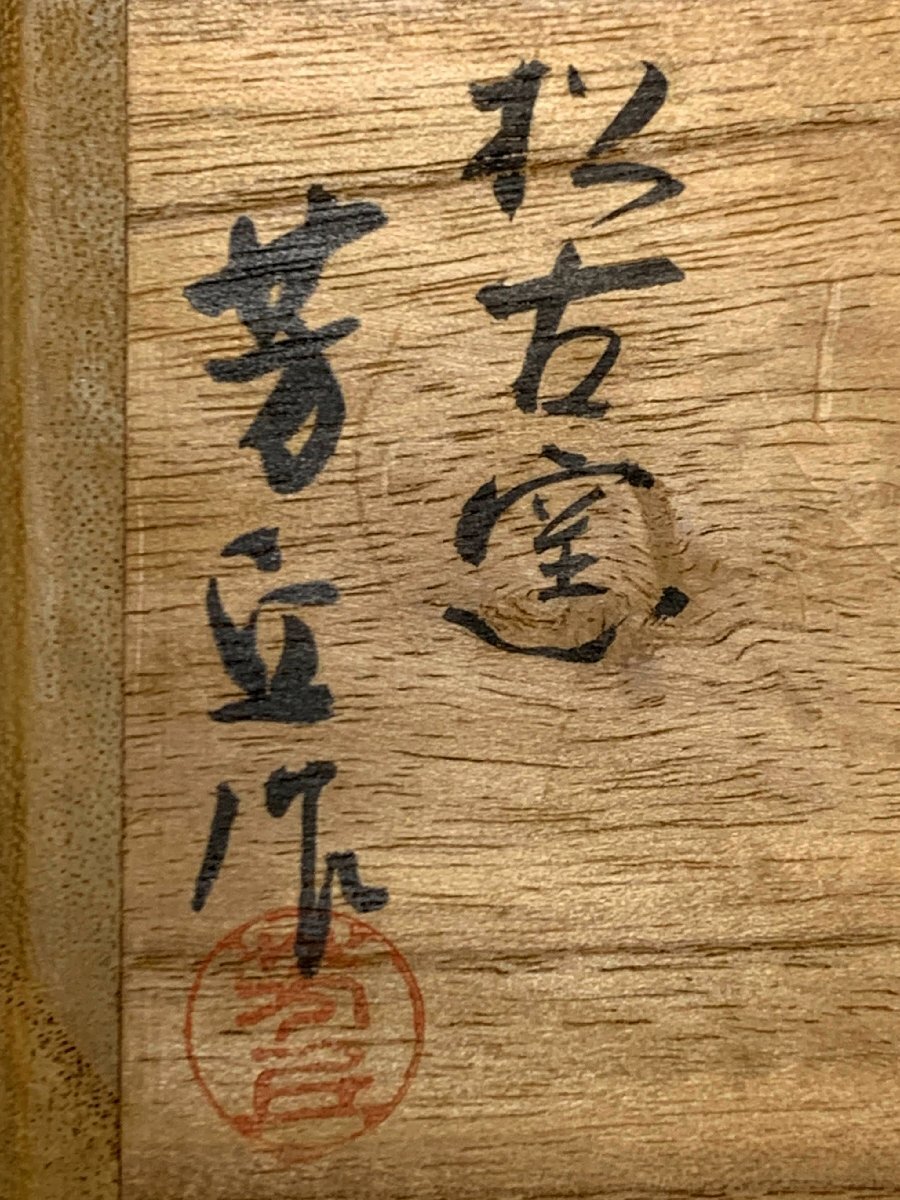 松古窯
芳作